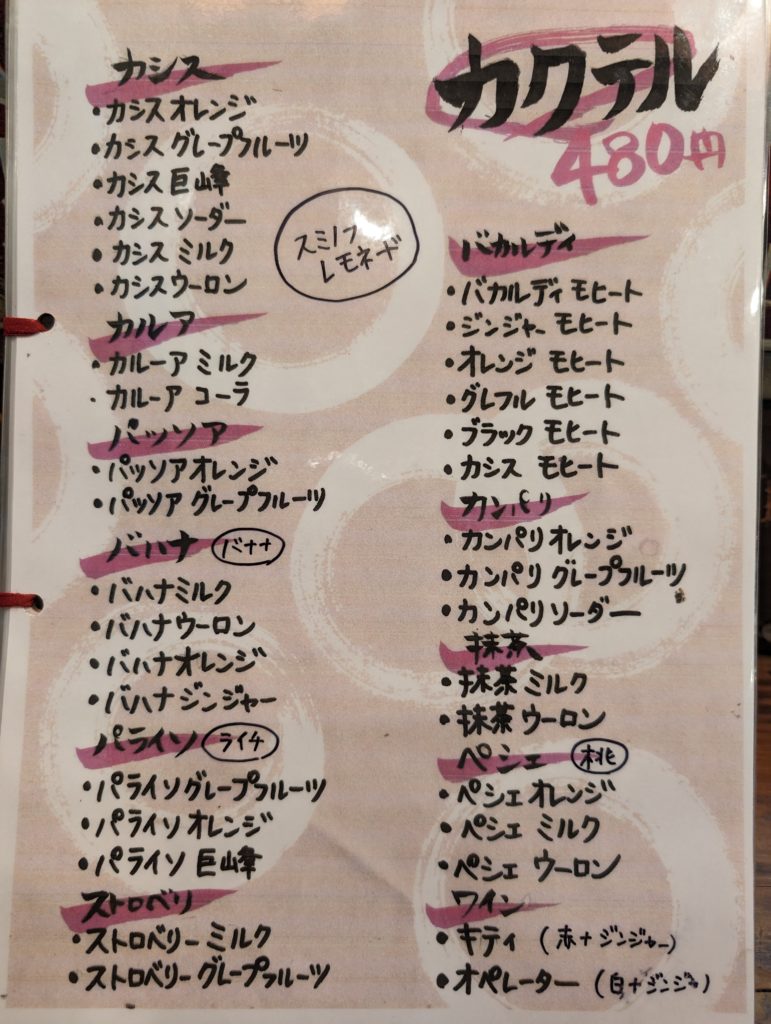 カクテル
480円
カシス
・カシスオレンジ
・カシス グレープフルーツ
・カシス 巨峰
・カシス ソーダー
・カシス ミルク
・カシスウーロン
スミノフ
レモネード
カルア
・カルーア ミルク
・カルーア コーラ
パッソア
・パッソアオレンジ
・パッソア グレープフルーツ
バハナ バナナ
・バハナミルク
・バハナウーロン
・バハナオレンジ
・バハナジンジャー
パライソ ライチ
・パライソグレープフルーツ
・パライソ オレンジ
・パライソ 巨峰
ストロベリ
・ストロベリー ミルク
・ストロベリー グレープフルーツ
バカルディ
・バカルディ モヒート
・ジンジャー モヒート
・オレンジ モヒート
・グレフル モヒート
・ブラック モヒート
・カシス モヒート
カンパリ
・カンパリ オレンジ
・カンパリ グレープフルーツ
・カンパリ ソーダー
抹茶
・抹茶 ミルク
・抹茶 ウーロン
ペシェ 桃
・ペシェ オレンジ
・ペシェ ミルク
・ペシェ ウーロン
ワイン
・キティ (赤+ジンジャー)
・オペレーター (白+ジンジャ)